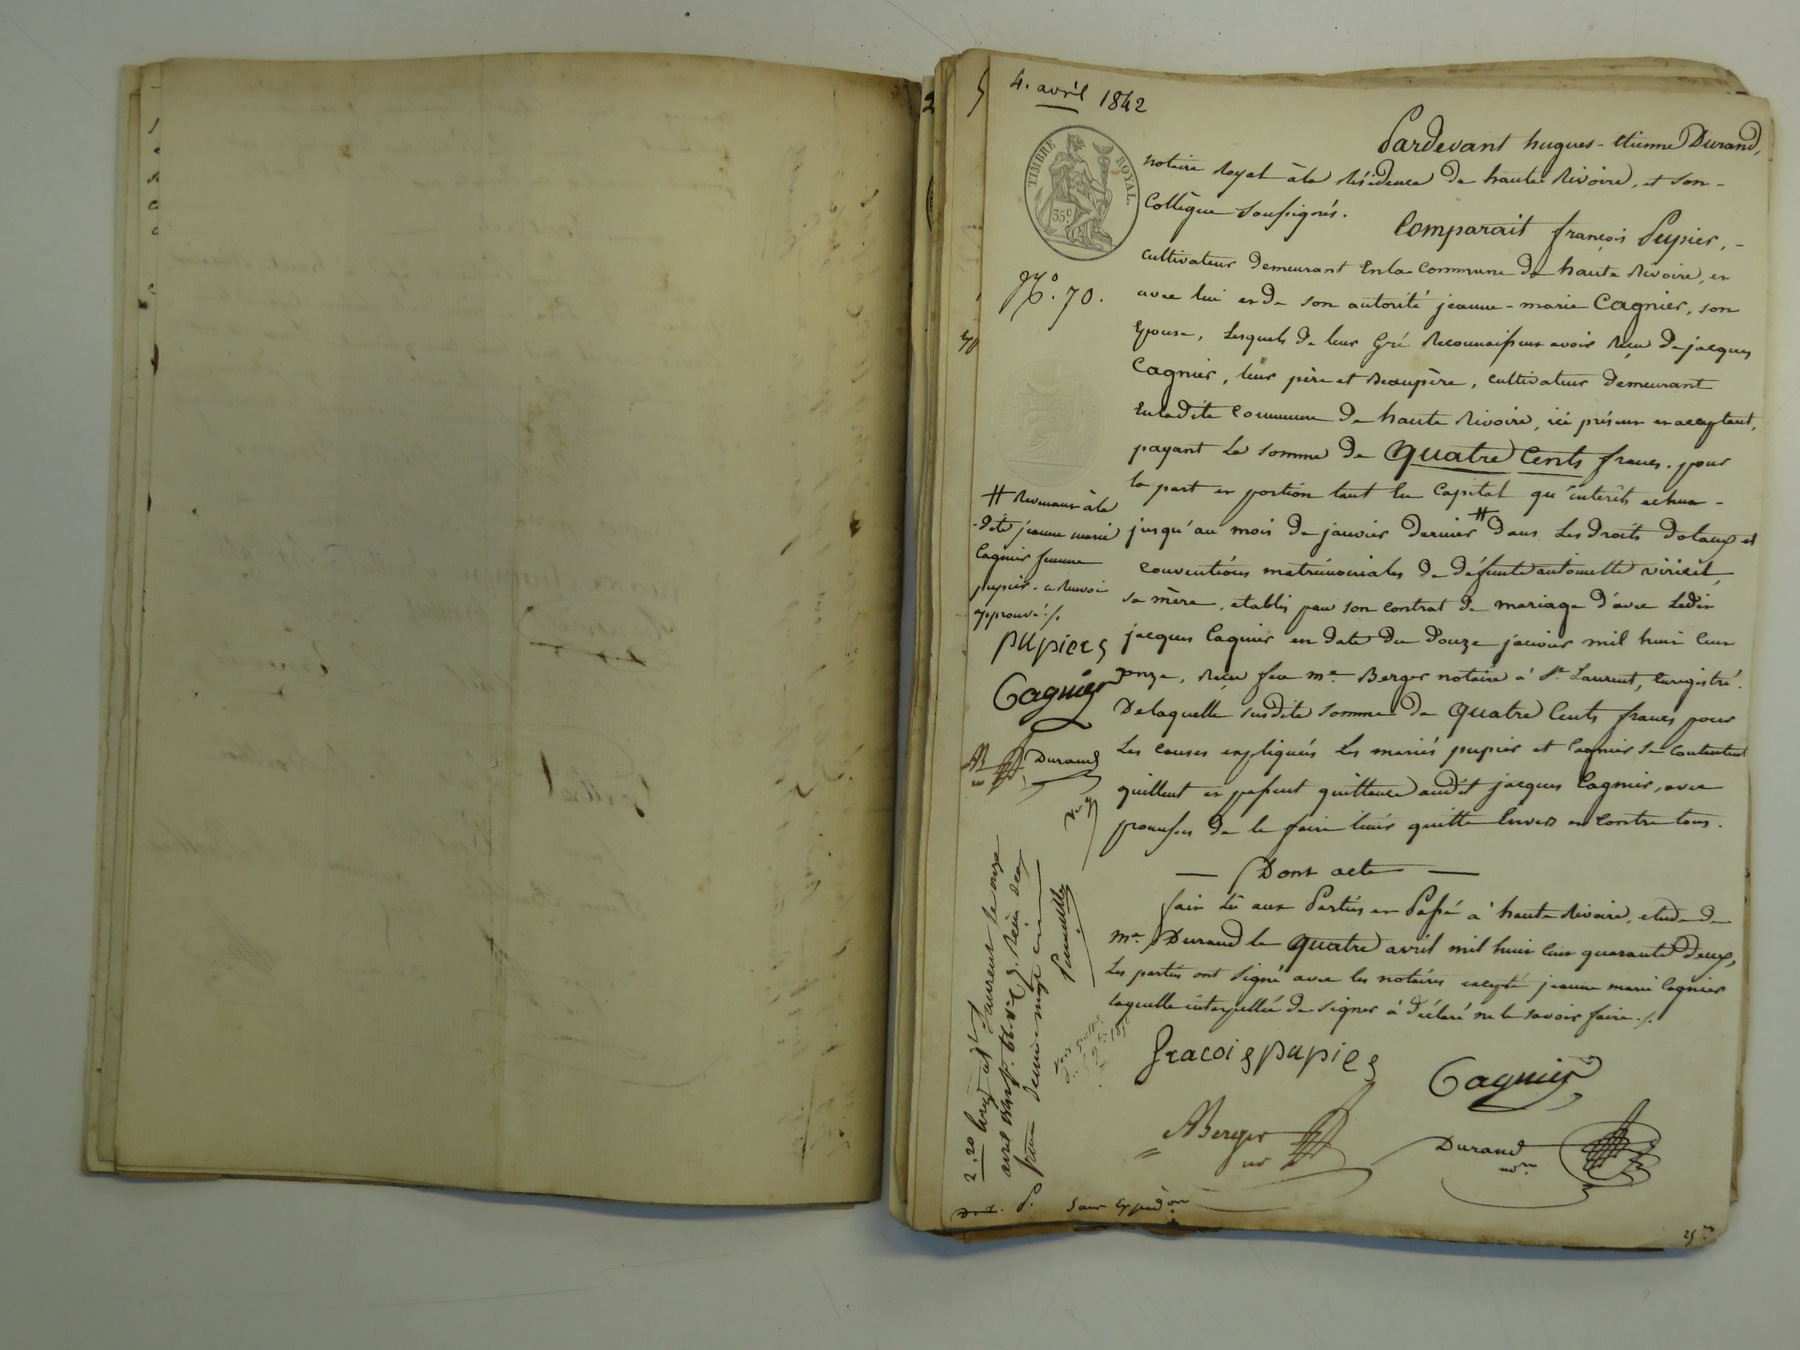 4. avril 1842
TIMBRE ROYAL.
35c.
No. 70.
70
Pardevant hugues-etienne Durand,
notaire Royal à la Résidence de haute Rivoire, et son-
Collègue soussignés.
Comparait françois Pupier, -
cultivateur demeurant En la commune de haute Rivoire, et
avec lui et de son autorité jeanne-marie Cagnier, son
Epouse, Lesquels de leur Gré Reconnaissent avoir Reçu de jacques
Cagnier, leur père et Beaupère, cultivateur demeurant
En ladite commune de haute Rivoire, ici présent et acceptant,
payant la somme de quatre Cents francs. pour
la part et portion tant En Capital qu'intérêts echus -
jusqu'au mois de janvier dernier # dans Les droits dotaux et
conventions matrimoniales de défunte antoinette viricel,
sa mère, etablis par son contrat de mariage d'avec Ledit
jacques Cagnier en date du Douze janvier mil huit cent
onze, Reçu feu me. Berger notaire à St. Laurent, Enregistré.
De laquelle susdite somme de quatre Cents francs pour
Les causes expliquées Les mariés pupier et Cagnier se contentent
quittent et passent quittance audit jacques Cagnier, avec
promesses de le faire tenir quitte Envers et Contre tous.
— Dont acte —
fait Lu aux Parties et Passé à haute Rivoire, etude de
me. Durand le quatre avril mil huit cent quarante Deux,
Les parties ont signé avec les notaires excepté jeanne marie Cagnier
laquelle interpellée de signer à déclaré ne le savoir faire ./.
# Revenant à la
-dite jeanne marie
Cagnier femme
pupier. ce Renvoi
approuvé ./.
pupier
Cagnier
Durand
fracois pupier
Cagnier
ABerger
nre
Durand
nore
2,20 Enregt. à St Laurent le onze
avril
franc deux centimes
Sans Expedon